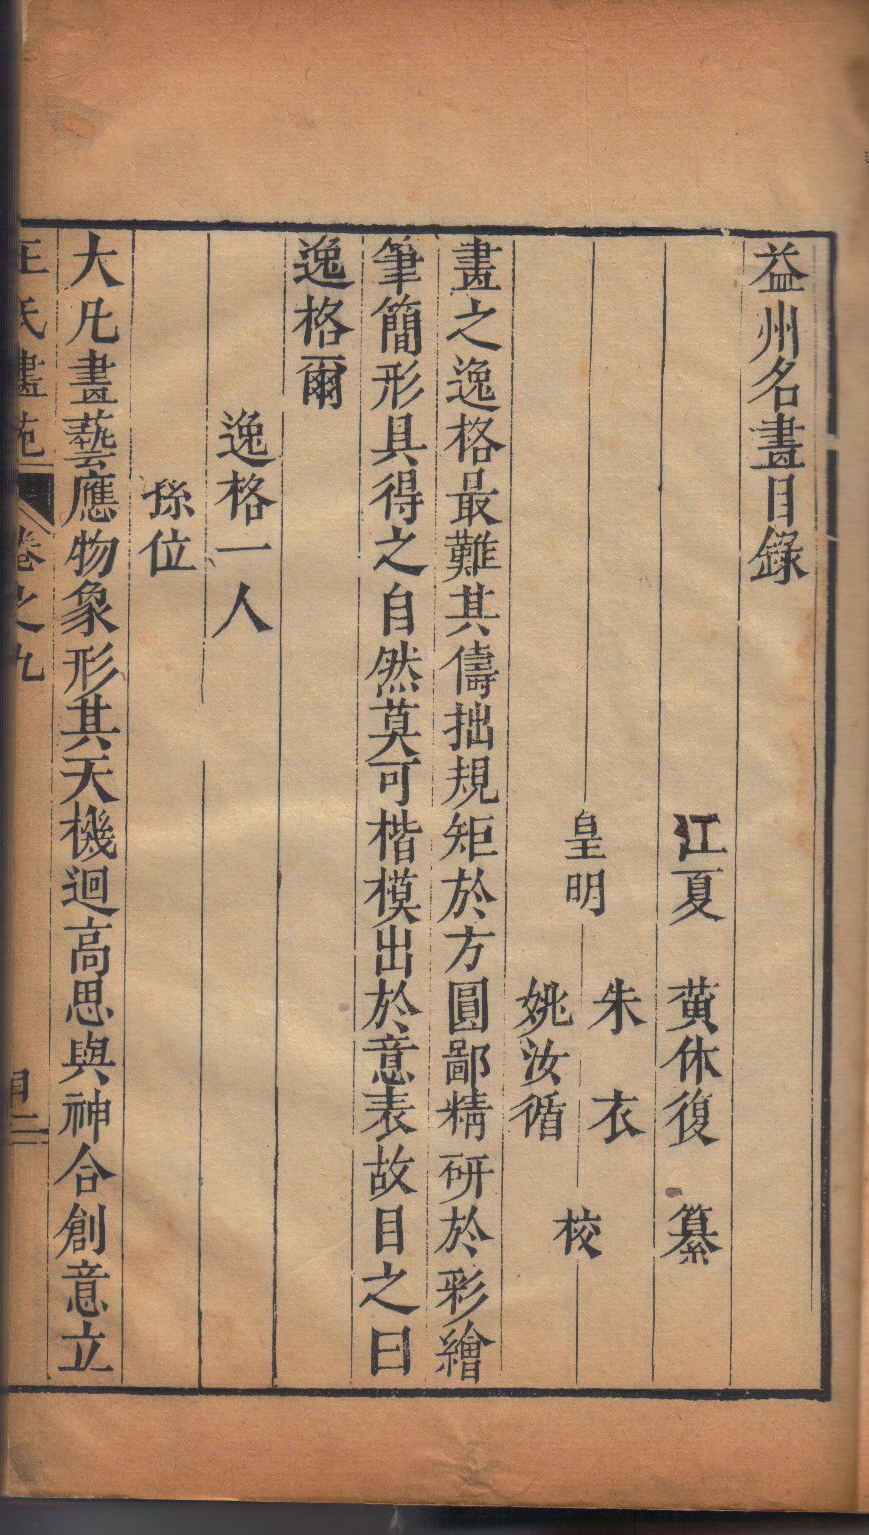 益州名畫目錄
江夏 黃休復 纂
皇明 朱衣 校
姚汝循
畫之逸格最難其儔拙規矩於方圓鄙精研於彩繪
筆簡形具得之自然莫可楷模出於意表故目之曰
逸格爾
逸格一人
孫位
大凡畫藝應物象形其天機迥高思與神合創意立
王氏畫苑 卷之九